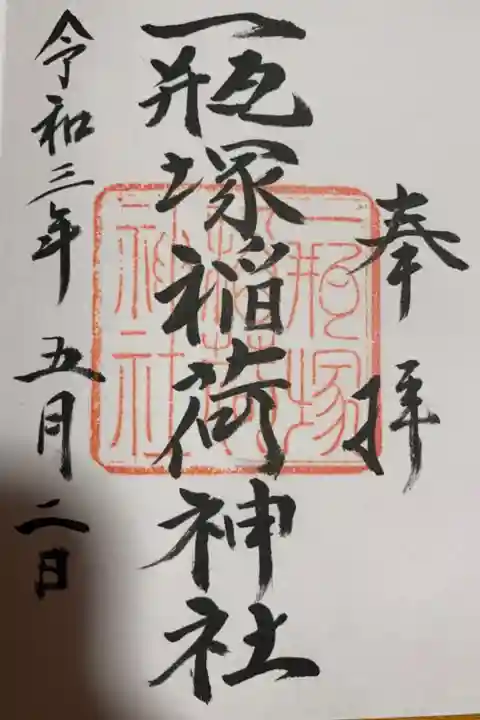 奉拝
一瓶塚稲荷神社
令和三年五月二日
一瓶塚
稲荷
神社